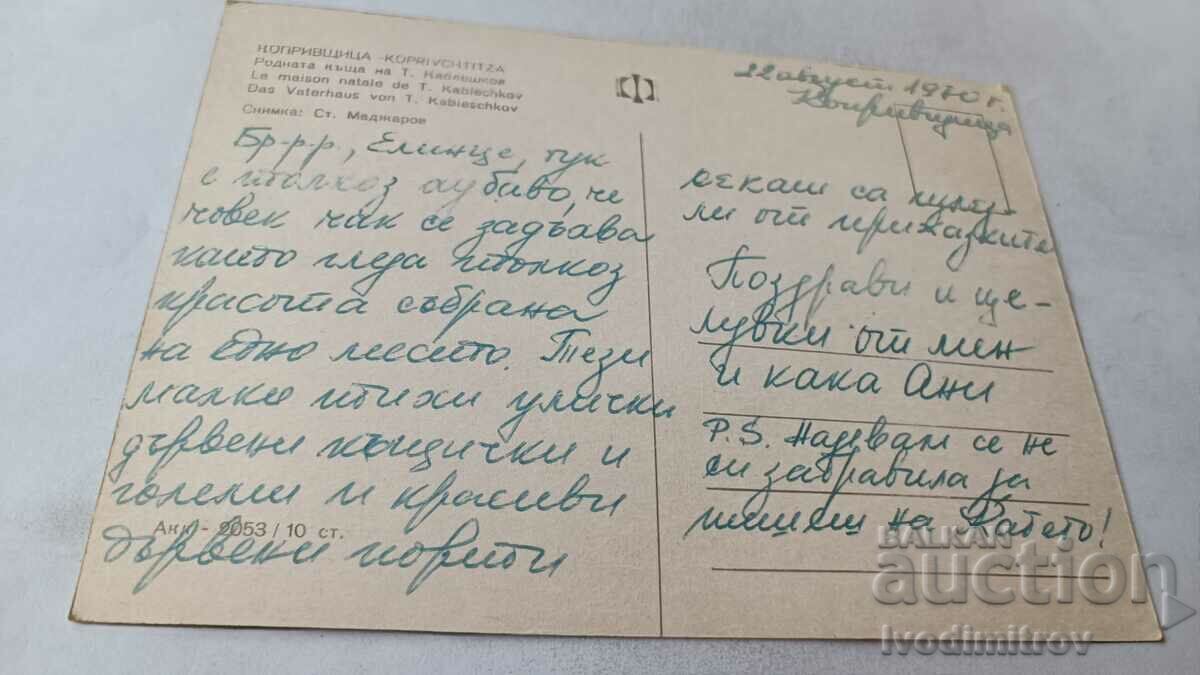 КОПРИВЩИЦА - KOPRIVCHTITZA
Родната къща на Т. Каблешков
La maison natale de T. Kablechkov
Das Vaterhaus von T. Kableschkov
Снимка: Ст. Маджаров
22 август 1970 г.
Копривщица
Бр-р-р, Елинце, тук
е толкоз хубаво, че
човек чак се задъва
като гледа толкоз
красота събрана
на едно место. Тези
малки тихи улички
дървени къщички и
големи и красиви
дървени порти
Акк - 2053 / 10 ст.
секаш са
ли от приказките
Поздрави и це-
лувки от мен
и кака Ани
P.S. Надевам се не
си забравила да
пишеш на Катето!
BALKAN
auction
Ivodimitrov